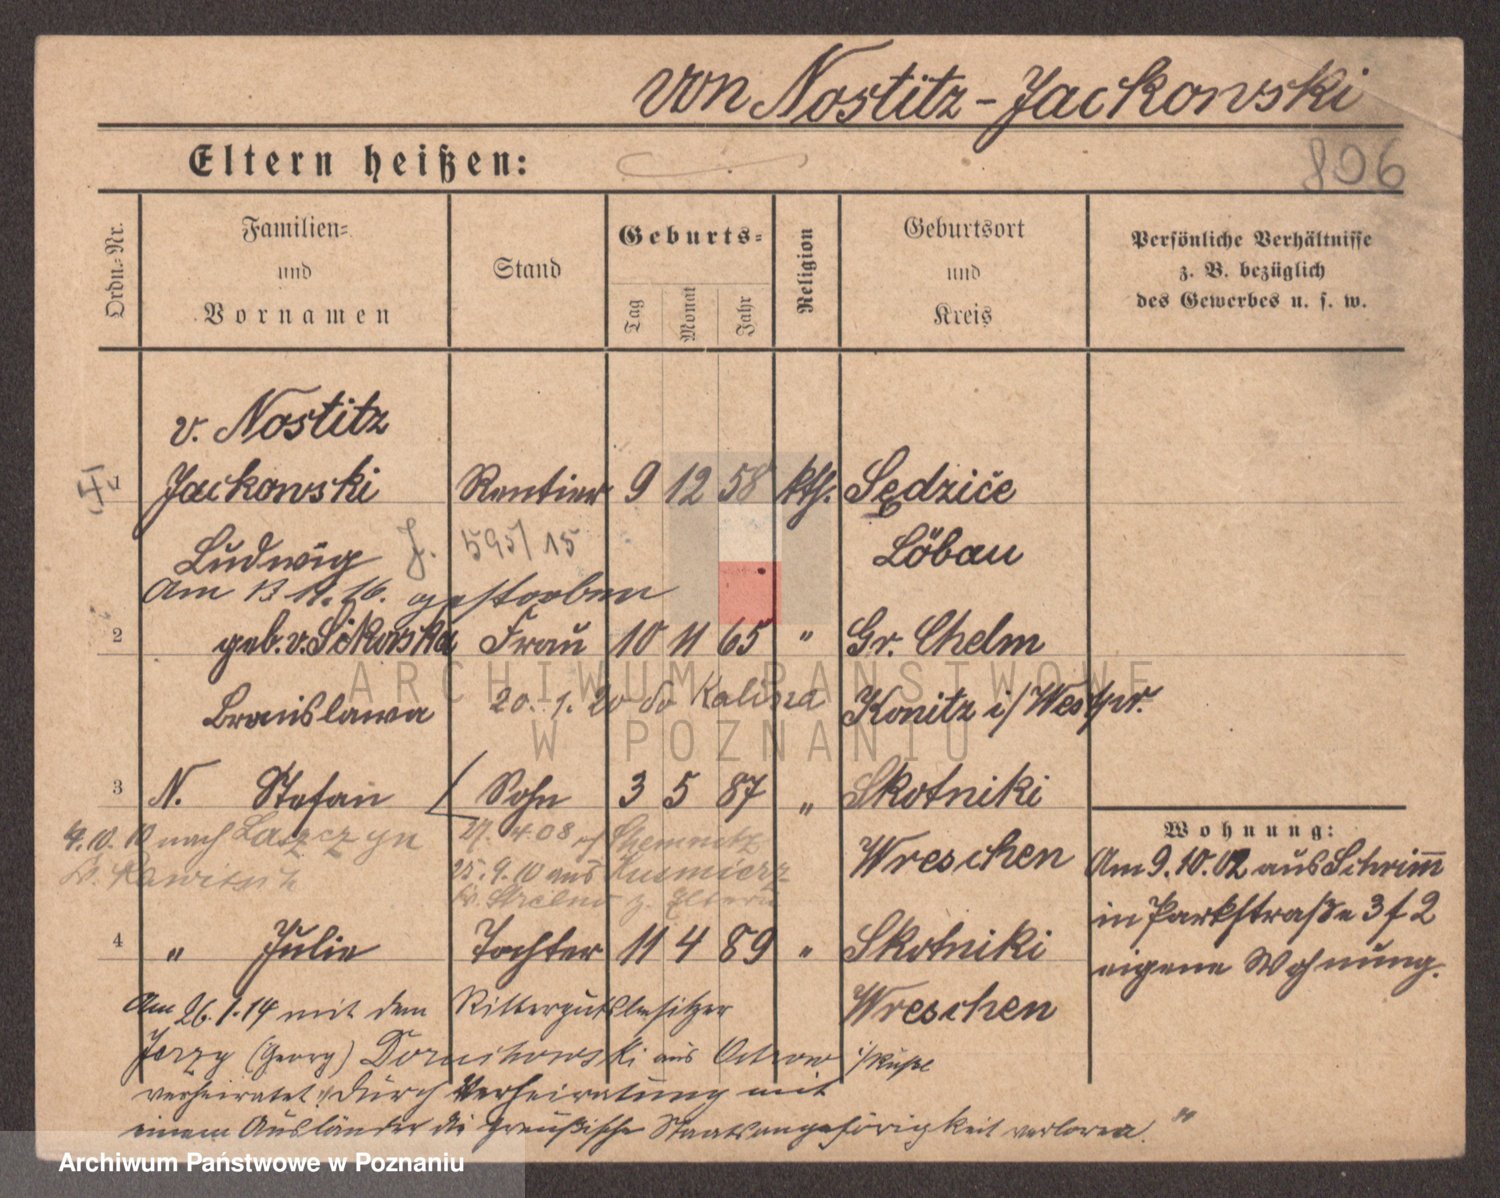 von Nostitz-Jackowski
806
Eltern heißen:
Ordn.-Nr.
Familien-
und
Vornamen
Stand
Geburts-
Tag
Monat
Jahr
Religion
Geburtsort
und
Kreis
Persönliche Verhältnisse
z. B. bezüglich
des Gewerbes u. s. w.
v. Nostitz
Jackowski Rentier 9 12 58 kth. Sędziče
Ludwig J. 595/15 Löbau
Am 13. 11. 16. gestorben
2 geb. v. Sikorska Frau 10 11 65 " Gr. Chelm
Bronislawa 20. 1. 20 do Kalisza Konitz i/Westpr.
3 N. Stefan Sohn 3 5 87 " Skotniki
Wreschen
9. 10. 10 nach Laszczyn 27. 4. 08 Chemnitz
Kr. Rawitsch 25. 9. 10 aus Kusmierz
Kr. Strelno z. Eltern
4 " Julie Tochter 11 4 89 " Skotniki
Wreschen
Am 26. 1. 14 mit dem Rittergutsbesitzer
Jerzy (Georg) aus Ostrow
verheiratet. "Durch Verheiratung mit
einem Ausländer die Preußische Staatsangehörigkeit verloren."
Wohnung:
Am 9. 10. 02 aus Schrimm
in Parkstraße 3 f 2
eigene Wohnung.
ARCHIWUM PAŃSTWOWE
W POZNANIU
Archiwum Państwowe w Poznaniu